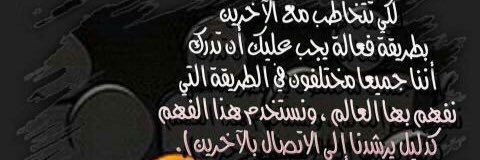 لكي تتخاطب مع الآخرين
بطريقة فعالة يجب عليك أن تدرك
أننا جميعا مختلفون في الطريقة التي
نفهم بها العالم ، ونستخدم هذا الفهم
كدليل يرشدنا إلى الاتصال بالآخرين ).